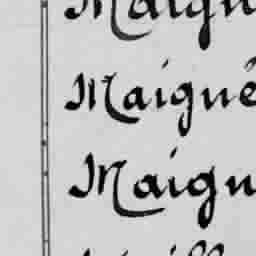 Maign
Maigné
Maign